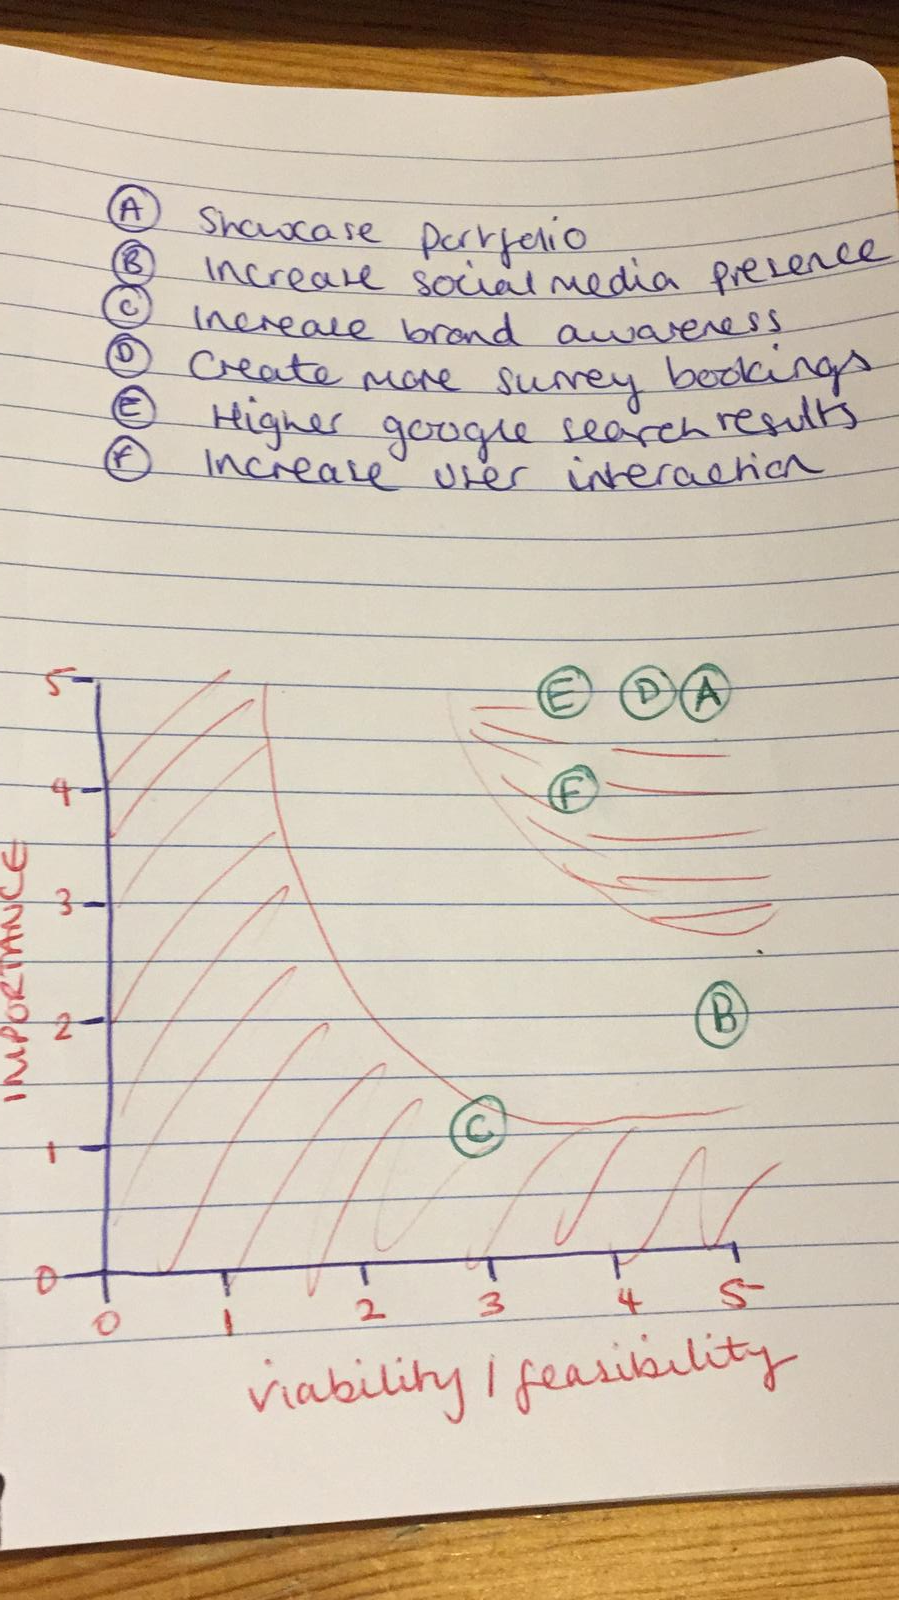 A Showcase Portfolio
B Increase social media presence
C Increase brand awareness
D Create more survey bookings
E Higher google search results
F Increase user interaction
5 E D A
4 F
3
2 B
1 C
0
0 1 2 3 4 5
IMPORTANCE
viability / feasibility